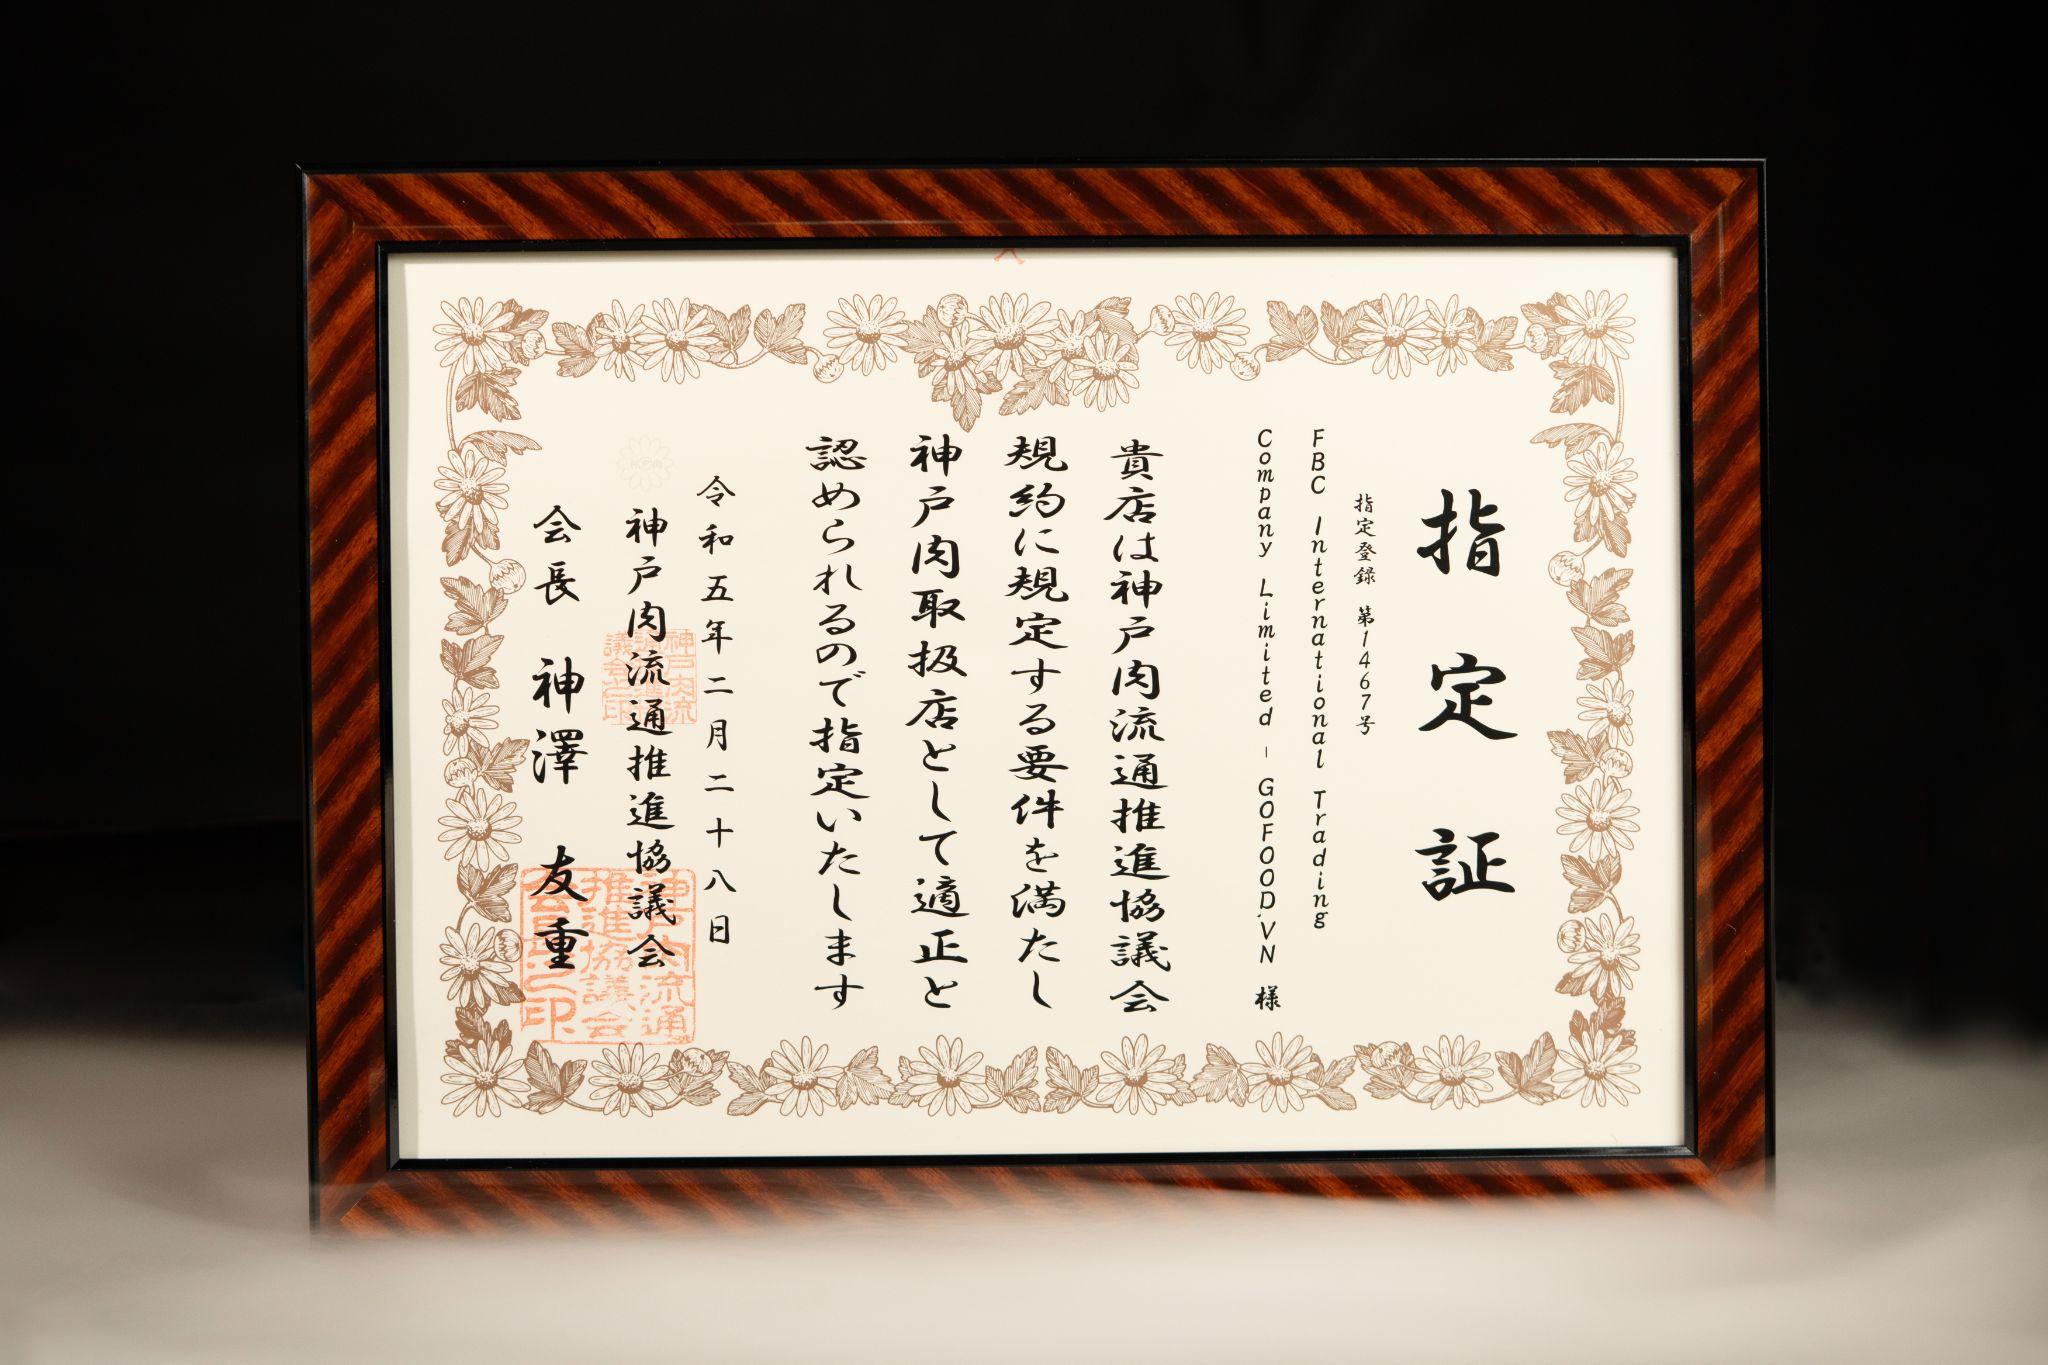 指定証
指定登録 第1467号
FBC International Trading
Company Limited - GOFOOD.VN 様
貴店は神戸肉流通推進協議会
規約に規定する要件を満たし
神戸肉取扱店として適正と
認められるので指定いたします
令和五年二月二十八日
神戸肉流通推進協議会
会長 神澤友重
神戸肉流
通推進協
議会之印
神戸肉流通
推進協議会
会長之印